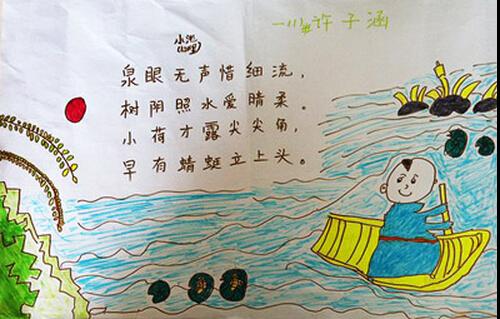 许子涵
小池
泉眼无声惜细流，
树阴照水爱晴柔。
小荷才露尖尖角，
早有蜻蜓立上头。